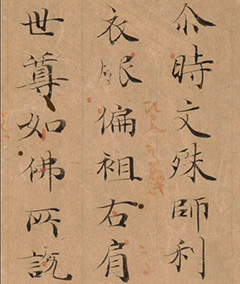 尒時文殊師利
衣服偏袒右肩
世尊如佛所説